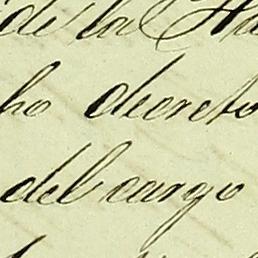 de la Ha
ho decreto
del cargo